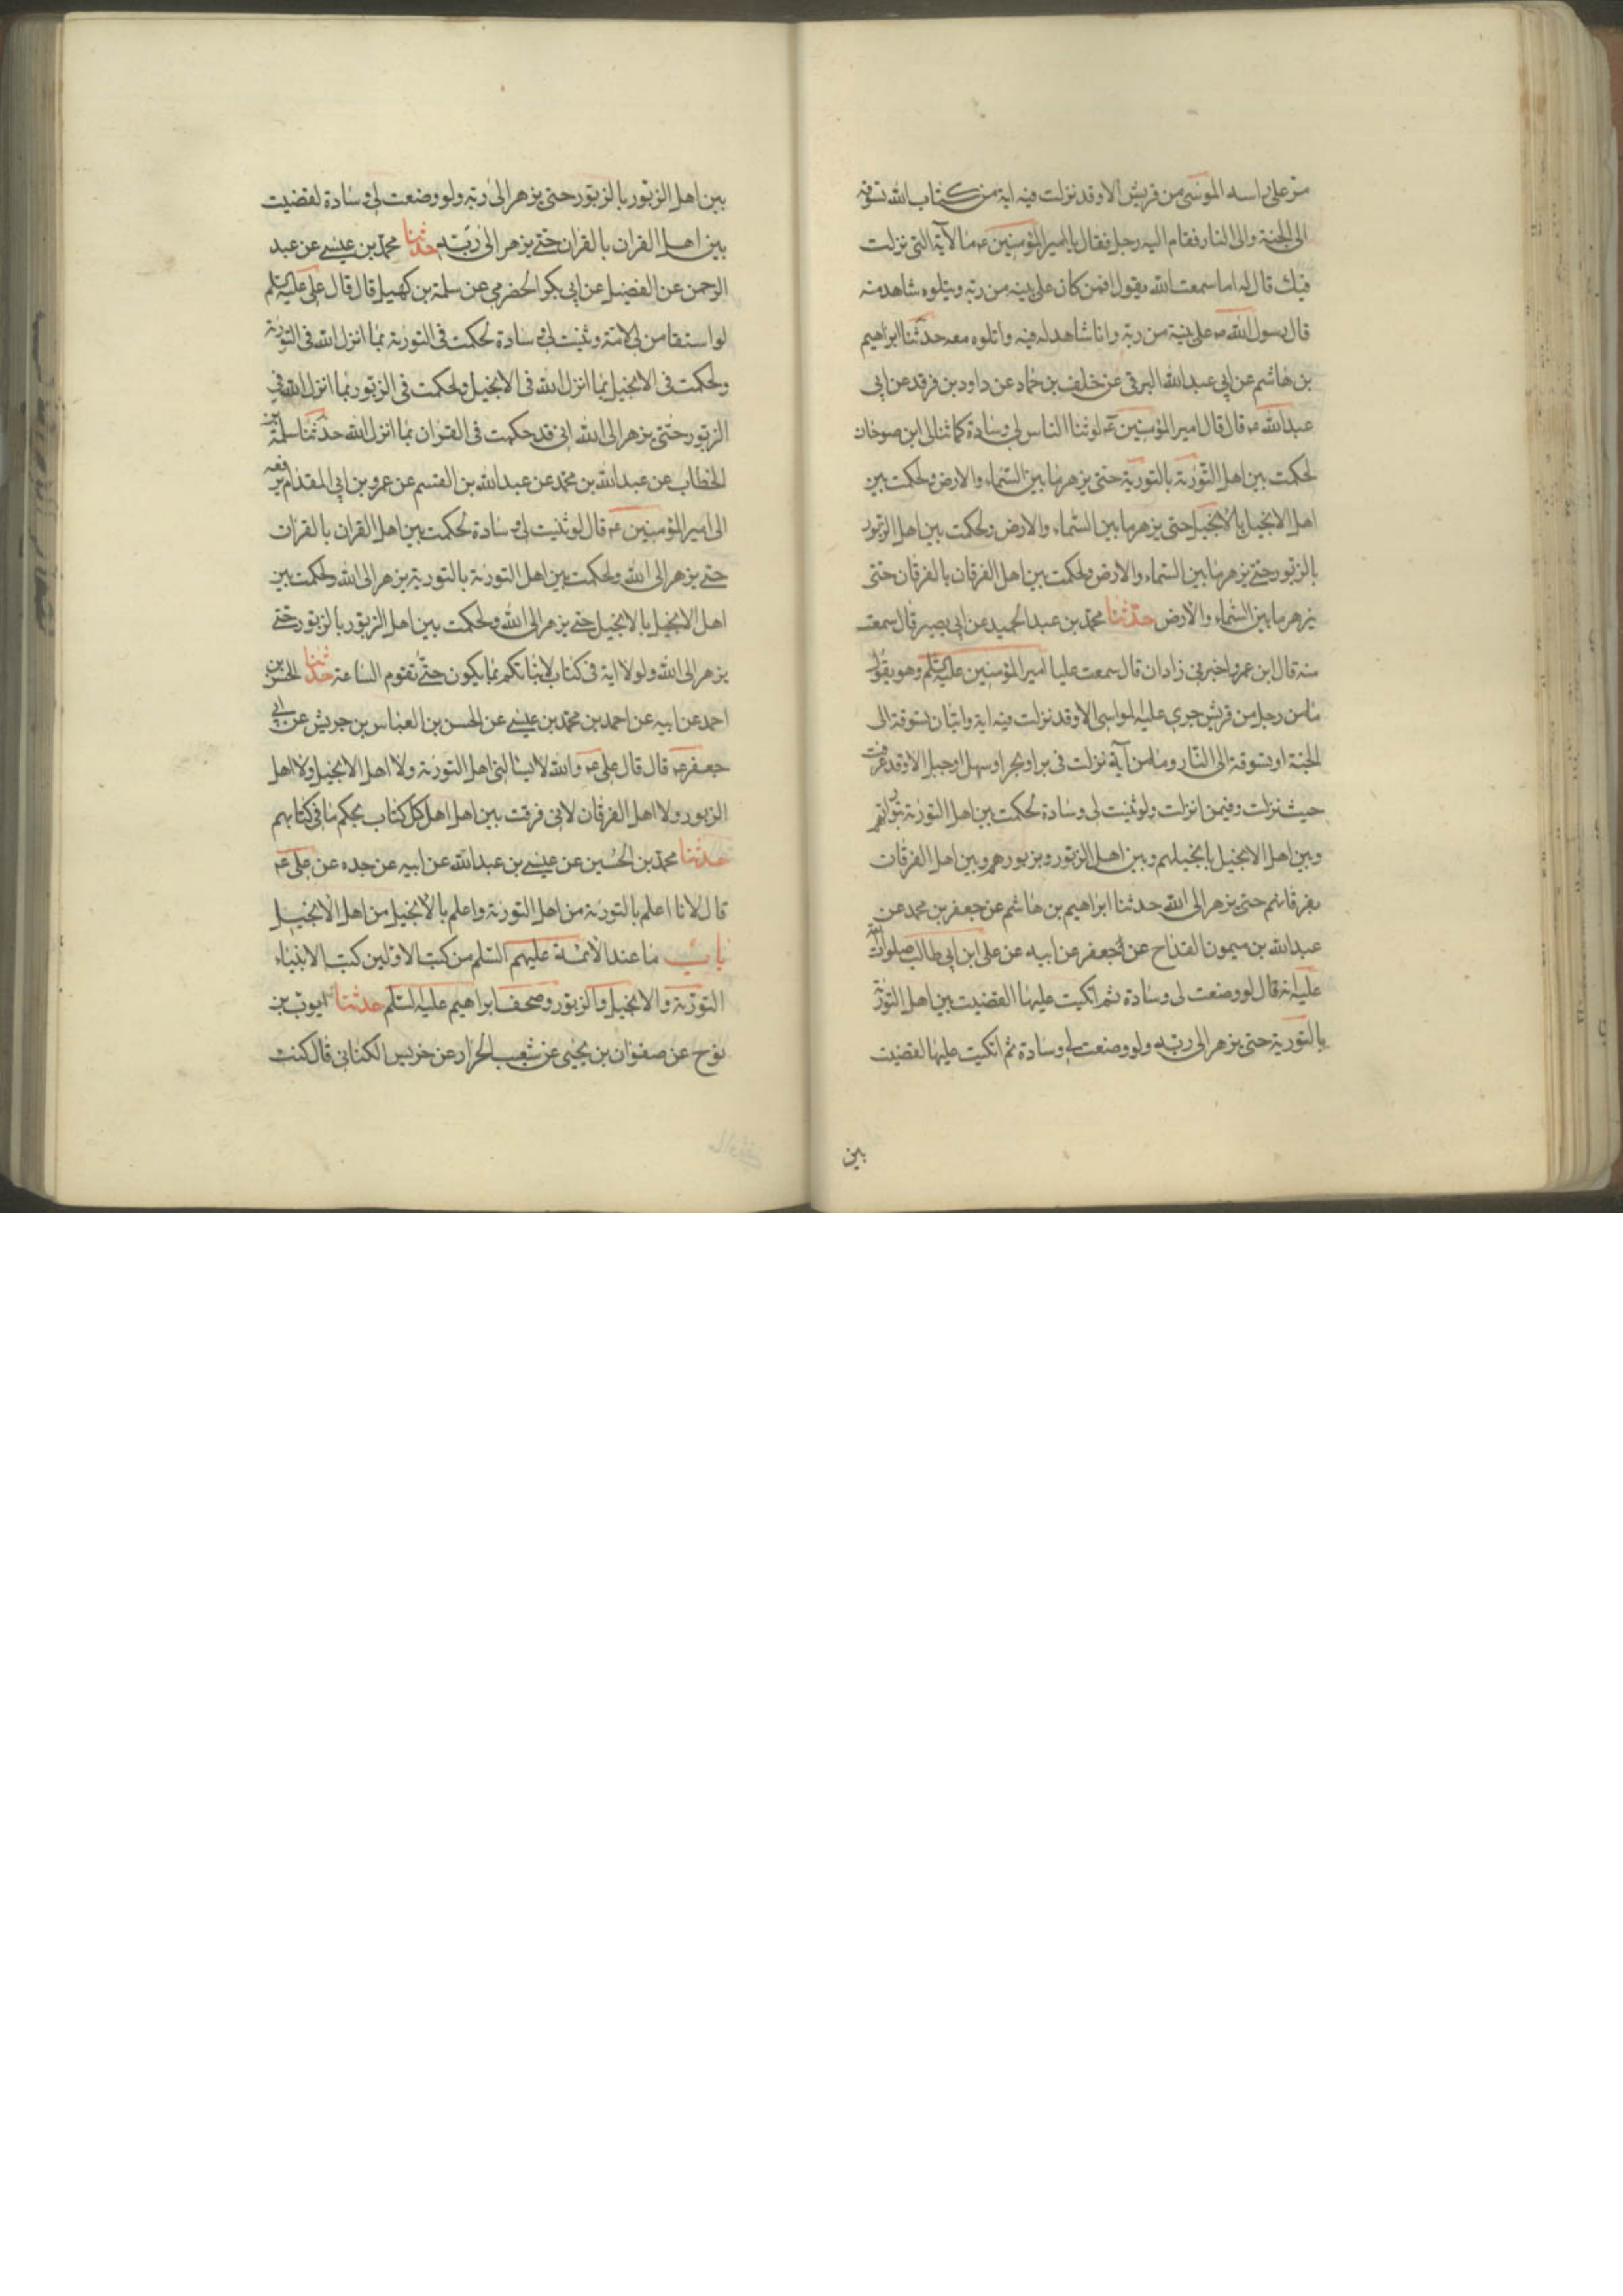 مر على راسه الموسى من قريش الا وقد نزلت فيه اية من كتاب الله تسوقه
الى الجنة والى النار فقام اليه رجل فقال يا امير المؤمنين ع ما الآية التى نزلت
فيك قال له اما سمعت الله يقول افمن كان على بينه من ربه ويتلوه شاهد منه
قال رسول الله ص على بينة من ربه وانا شاهد له فيه واتلوه معه حدثنا ابراهيم
بن هاشم عن ابى عبد الله البرقى عن خلف بن حماد عن داود بن فرقد عن ابى
عبد الله ع قال قال امير المؤمنين ع لو ثنا الناس لى وسادة كما ثنا لى ابن صوخان
لحكمت بين اهل التورية بالتورية حتى يزهر ما بين السماء والارض ولحكمت بين
اهل الانجيل بالانجيل حتى يزهر ما بين السماء والارض ولحكمت بين اهل الزبور
بالزبور حتى يزهر ما بين السماء والارض ولحكمت بين اهل الفرقان بالفرقان حتى
يزهر ما بين السماء والارض حدثنا محمد بن عبد الحميد عن ابى بصير قال سمعت
منه قال ابن عمرو اخبرنى زادان قال سمعت عليا امير المؤمنين عليه السلم وهو يقول
ما من رجل من قريش جرى عليه لمواسى الا وقد نزلت فيه اية وايتان تسوقه الى
الجنة او تسوقه الى النار وما من آية نزلت فى بر او بحر او سهل او جبل الا وقد عرفت
حيث نزلت وفيمن انزلت ولو ثنيت لى وسادة لحكمت بين اهل التورية بتوراتهم
وبين اهل الانجيل بانجيلهم وبين اهل الزبور وبزبورهم وبين اهل الفرقان
بفرقانهم حتى يزهر الى الله حدثنا ابراهيم بن هاشم عن جعفر بن محمد عن
عبد الله بن ميمون القداح عن جعفر عن ابيه عن على ابن ابى طالب صلوات الله
عليه انه قال لو وضعت لى وسادة ثم اتكيت عليها لقضيت بين اهل التورية
بالتورية حتى يزهر الى ربه ولو وضعت لى وسادة ثم اتكيت عليها لقضيت
بين
بين اهل الزبور بالزبور حتى يزهر الى ربه ولو وضعت لى وسادة لقضيت
بين اهل القران بالقران حتى يزهر الى ربه حدثنا محمد بن عيسى عن عبد
الرحمن عن الفضيل عن ابى بكر الحضرمى عن سلمة بن كهيل قال قال على عليه السلم
لو استقامن لى الامة وثنيت لى وسادة لحكمت فى التورية بما انزل الله فى التورية
ولحكمت فى الانجيل بما انزل الله فى الانجيل ولحكمت فى الزبور بما انزل الله فى
الزبور حتى يزهر الى الله انى قد حكمت فى القران بما انزل الله حدثنا سلمة بن
الخطاب عن عبد الله بن محمد عن عبد الله بن القسم عن عمرو بن ابى المقدام يرفعه
الى امير المؤمنين ع قال لو ثنيت لى وسادة لحكمت بين اهل القران بالقران
حتى يزهر الى الله ولحكمت بين اهل التورية بالتورية يزهر الى الله ولحكمت بين
اهل الانجيل بالانجيل حتى يزهر الى الله ولحكمت بين اهل الزبور بالزبور حتى
يزهر الى الله ولولا اية فى كتاب لانباتكم بما يكون حتى تقوم الساعة حدثنا الحسن بن
احمد عن ابيه عن احمد بن محمد بن عيسى عن الحسن بن العباس بن حريش عن ابى
جعفر ع قال قال على ع والله لا يسالنى اهل التورية ولا اهل الانجيل ولا اهل
الزبور ولا اهل الفرقان لانى فرقت بين اهل اهل كل كتاب بحكم ما فى كتابهم
حدثنا محمد بن الحسين عن عيسى بن عبد الله عن ابيه عن جده عن على ع
قال لانا اعلم بالتورية من اهل التورية واعلم بالانجيل من اهل الانجيل
باب ما عند الائمة عليهم السلم من كتب الاولين كتب الانبياء
التورية والانجيل والزبور وصحف ابراهيم عليه السلم حدثنا ايوب بن
نوح عن صفوان بن يحيى عن شعيب الخراز عن ضريس الكنانى قال كنت